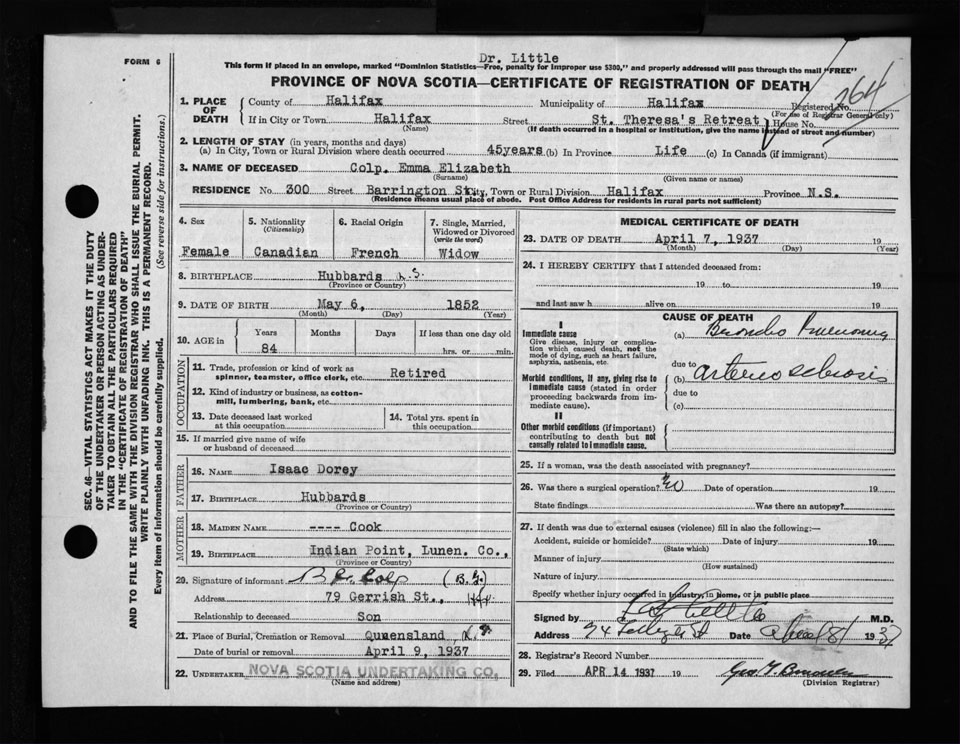 Dr. Little
FORM 6
This form if placed in an envelope, marked "Dominion Statistics—Free, penalty for improper use $300," and properly addressed will pass through the mail "FREE"
PROVINCE OF NOVA SCOTIA—CERTIFICATE OF REGISTRATION OF DEATH
764
1. PLACE OF DEATH
County of Halifax Municipality of Halifax Registered No.
(For use of Registrar General only)
If in City or Town Halifax Street St. Theresa's Retreat House No.
(Name) (If death occurred in a hospital or institution, give the name instead of street and number)
2. LENGTH OF STAY (in years, months and days)
(a) In City, Town or Rural Division where death occurred 45years (b) In Province Life (c) In Canada (if immigrant)
3. NAME OF DECEASED Colp. Emma Elizabeth
(Surname) (Given name or names)
RESIDENCE No. 300 Street Barrington St. City, Town or Rural Division Halifax Province N.S.
(Residence means usual place of abode. Post Office Address for residents in rural parts not sufficient)
4. Sex
Female
5. Nationality
(Citizenship)
Canadian
6. Racial Origin
French
7. Single, Married, Widowed or Divorced
(write the word)
Widow
8. BIRTHPLACE Hubbards N.S.
(Province or Country)
9. DATE OF BIRTH May 6, 1852
(Month) (Day) (Year)
10. AGE in
Years Months Days If less than one day old
84 hrs. or min.
OCCUPATION
11. Trade, profession or kind of work as spinner, teamster, office clerk, etc. Retired
12. Kind of industry or business, as cotton-mill, lumbering, bank, etc.
13. Date deceased last worked at this occupation
14. Total yrs. spent in this occupation
15. If married give name of wife or husband of deceased
FATHER
16. NAME Isaac Dorey
17. BIRTHPLACE Hubbards
(Province or Country)
MOTHER
18. MAIDEN NAME ---- Cook
19. BIRTHPLACE Indian Point, Lunen. Co.,
(Province or Country)
20. Signature of informant Colp (B.F.)
Address 79 Gerrish St., Hfx
Relationship to deceased Son
21. Place of Burial, Cremation or Removal Queensland N.S.
Date of burial or removal April 9, 1937
22. UNDERTAKER NOVA SCOTIA UNDERTAKING CO.
(Name and address)
MEDICAL CERTIFICATE OF DEATH
23. DATE OF DEATH April 7, 1937 19
(Month) (Day) (Year)
24. I HEREBY CERTIFY that I attended deceased from:
19 to 19
and last saw h alive on 19
CAUSE OF DEATH
I
Immediate cause
Give disease, injury or complication which caused death, not the mode of dying, such as heart failure, asphyxia, asthenia, etc.
(a) Broncho Pneumonia
due to
Morbid conditions, if any, giving rise to immediate cause (stated in order proceeding backwards from immediate cause).
(b) arterio sclerosis
due to
(c)
II
Other morbid conditions (if important) contributing to death but not causally related to immediate cause.
25. If a woman, was the death associated with pregnancy?
26. Was there a surgical operation? No Date of operation 19
State findings Was there an autopsy?
27. If death was due to external causes (violence) fill in also the following:—
Accident, suicide or homicide? Date of injury 19
(State which)
Manner of injury
(How sustained)
Nature of injury
Specify whether injury occurred in Industry, in Home, or in public place
Signed by M.D.
Address 94 Date 8 1937
28. Registrar's Record Number
29. Filed APR 14 1937 19 Geo. T.
(Division Registrar)
SEC. 46—VITAL STATISTICS ACT MAKES IT THE DUTY
OF THE UNDERTAKER OR PERSON ACTING AS UNDER-
TAKER TO OBTAIN ALL THE PARTICULARS REQUIRED
IN THE "CERTIFICATE OF REGISTRATION OF DEATH"
AND TO FILE THE SAME WITH THE DIVISION REGISTRAR WHO SHALL ISSUE THE BURIAL PERMIT.
WRITE PLAINLY WITH UNFADING INK. THIS IS A PERMANENT RECORD.
Every item of information should be carefully supplied. (See reverse side for instructions.)